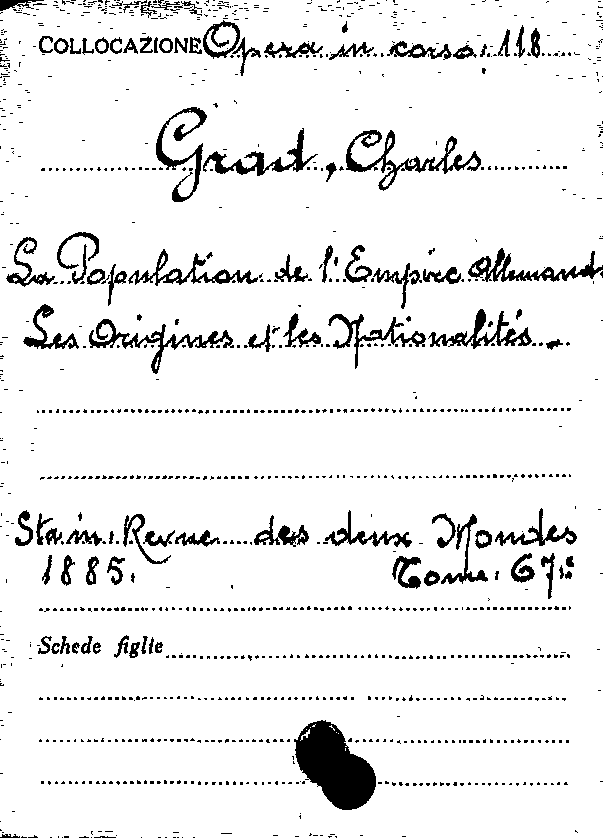 COLLOCAZIONE Opera in corso: 118
Grad, Charles
La Population de l'Empire Allemand.
Les Origines et les Nationalités -
Sta in: Revue des deux Mondes
1885. Tome: 67:e
Schede figlie